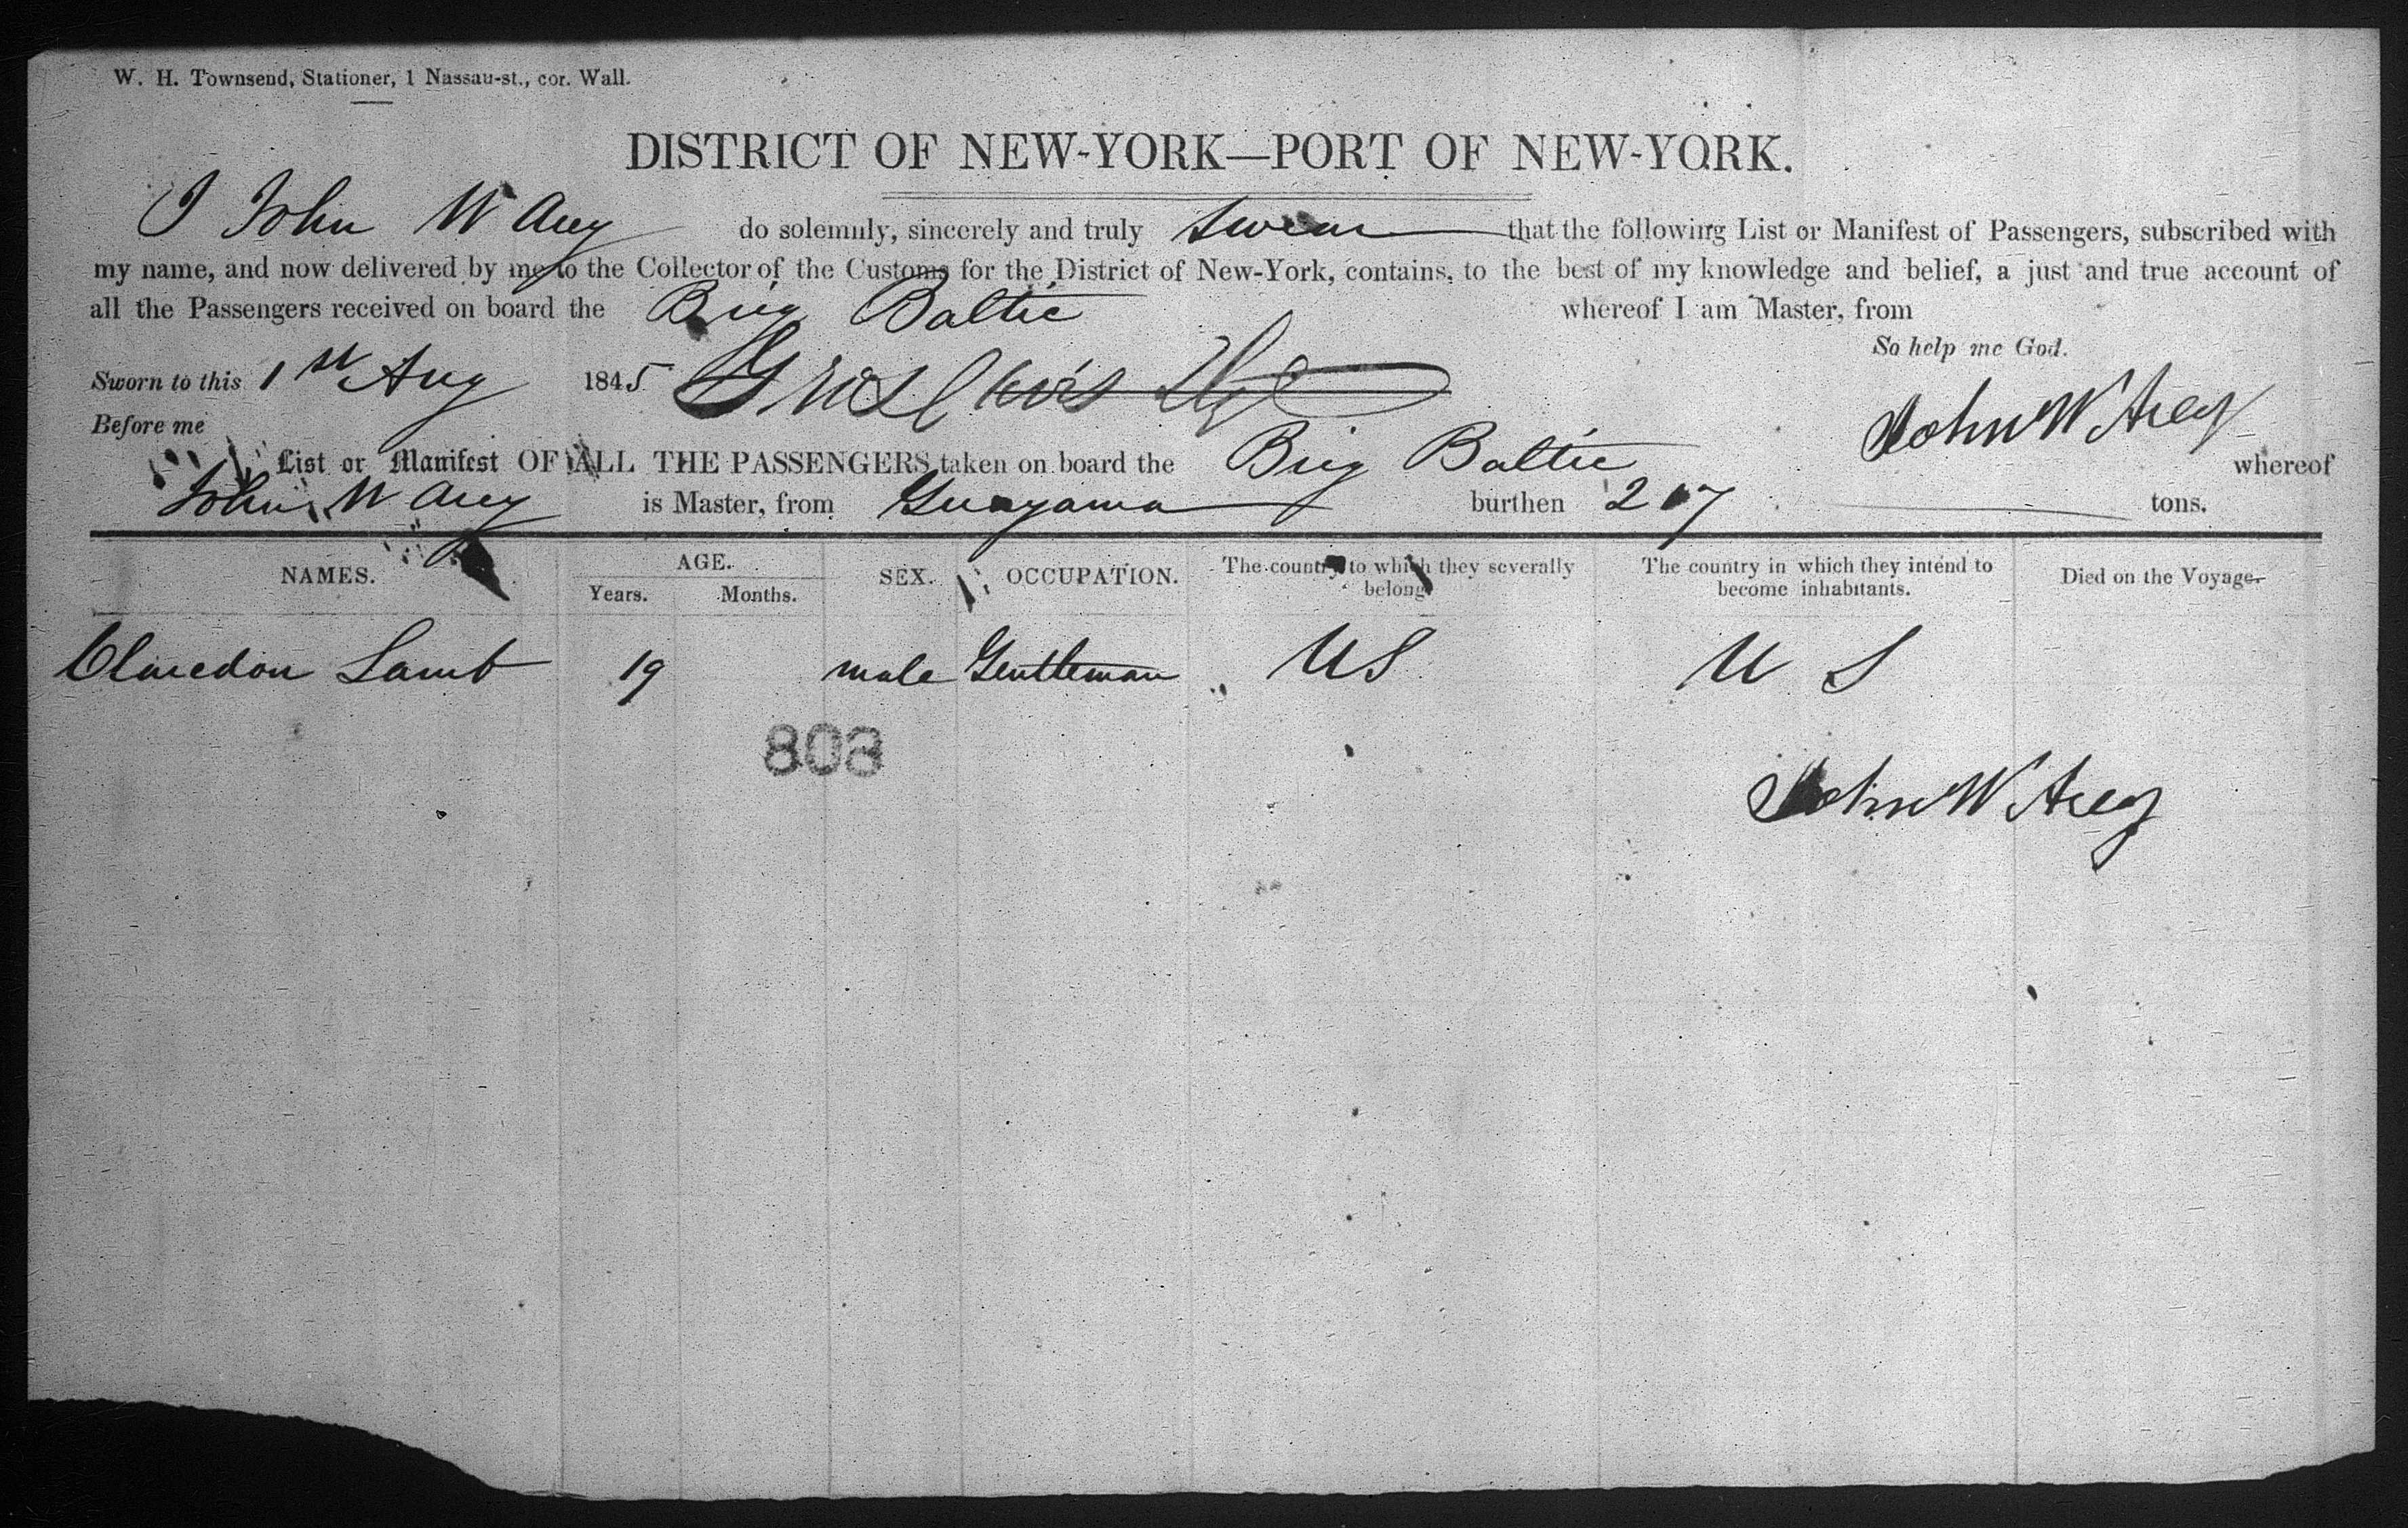 W. H. Townsend, Stationer, 1 Nassau-st., cor. Wall.
DISTRICT OF NEW-YORK—PORT OF NEW-YORK.
I John W Arey do solemnly, sincerely and truly swear that the following List or Manifest of Passengers, subscribed with
my name, and now delivered by me to the Collector of the Customs for the District of New-York, contains, to the best of my knowledge and belief, a just and true account of
all the Passengers received on board the Brig Baltic whereof I am Master, from
So help me God.
Sworn to this 1st Aug 1845 John W Arey
Before me
List or Manifest OF ALL THE PASSENGERS taken on board the Brig Baltic whereof
John W Arey is Master, from Guayama burthen 217 tons.
NAMES. AGE. SEX. OCCUPATION. The country to which they severally belong The country in which they intend to become inhabitants. Died on the Voyage.
Years. Months.
Lamb 19 male Gentleman US U S
808
John W Arey